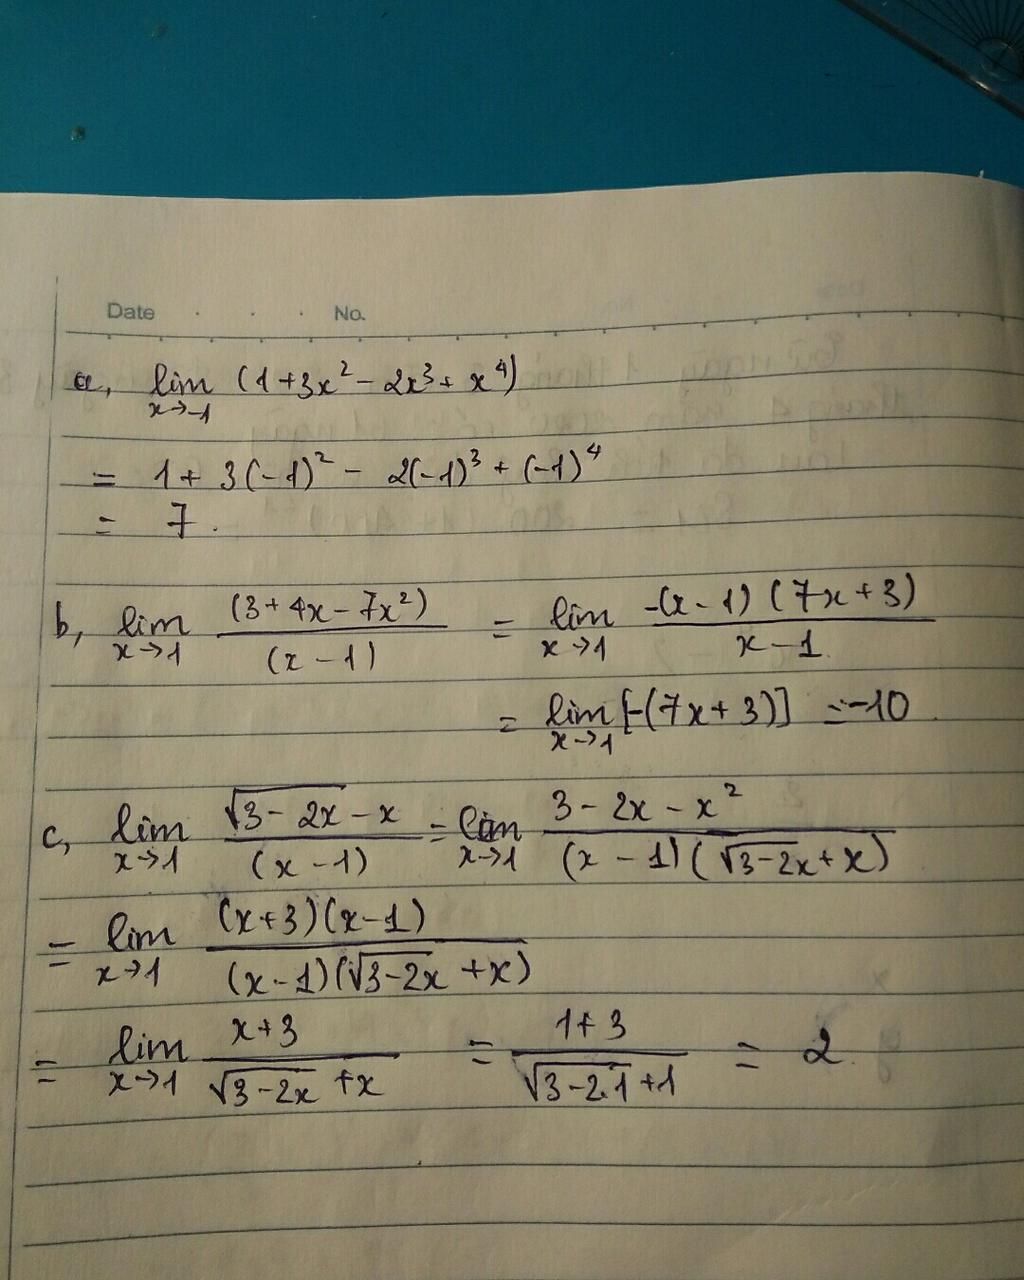 Date . . . No.
a, lim x→-1 (1+3x² - 2x³ + x⁴)
= 1 + 3(-1)² - 2(-1)³ + (-1)⁴
= 7.
b, lim x→1 (3+4x-7x²)/(x-1) = lim x→1 -(x-1)(7x+3)/x-1
= lim x→1 [-(7x+3)] = -10.
c, lim x→1 √3-2x - x/(x-1) = lim x→1 3-2x-x²/(x-1)(√3-2x+x)
= lim x→1 (x+3)(x-1)/(x-1)(√3-2x+x)
= lim x→1 x+3/√3-2x+x = 1+3/√3-2.1+1 = 2.